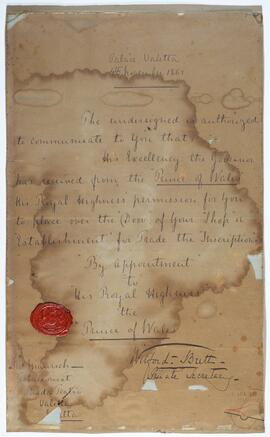 Palace Valetta
November 1861
The undersigned is authorized
to communicate to You that
His Excellency the Governor
has received from the Prince of Wales
His Royal Highness permission for You
to place over the Door of Your Shop or
Establishment for Trade the Inscription
By Appointment
to
His Royal Highness
the
Prince of Wales
Private Secretary
Valetta